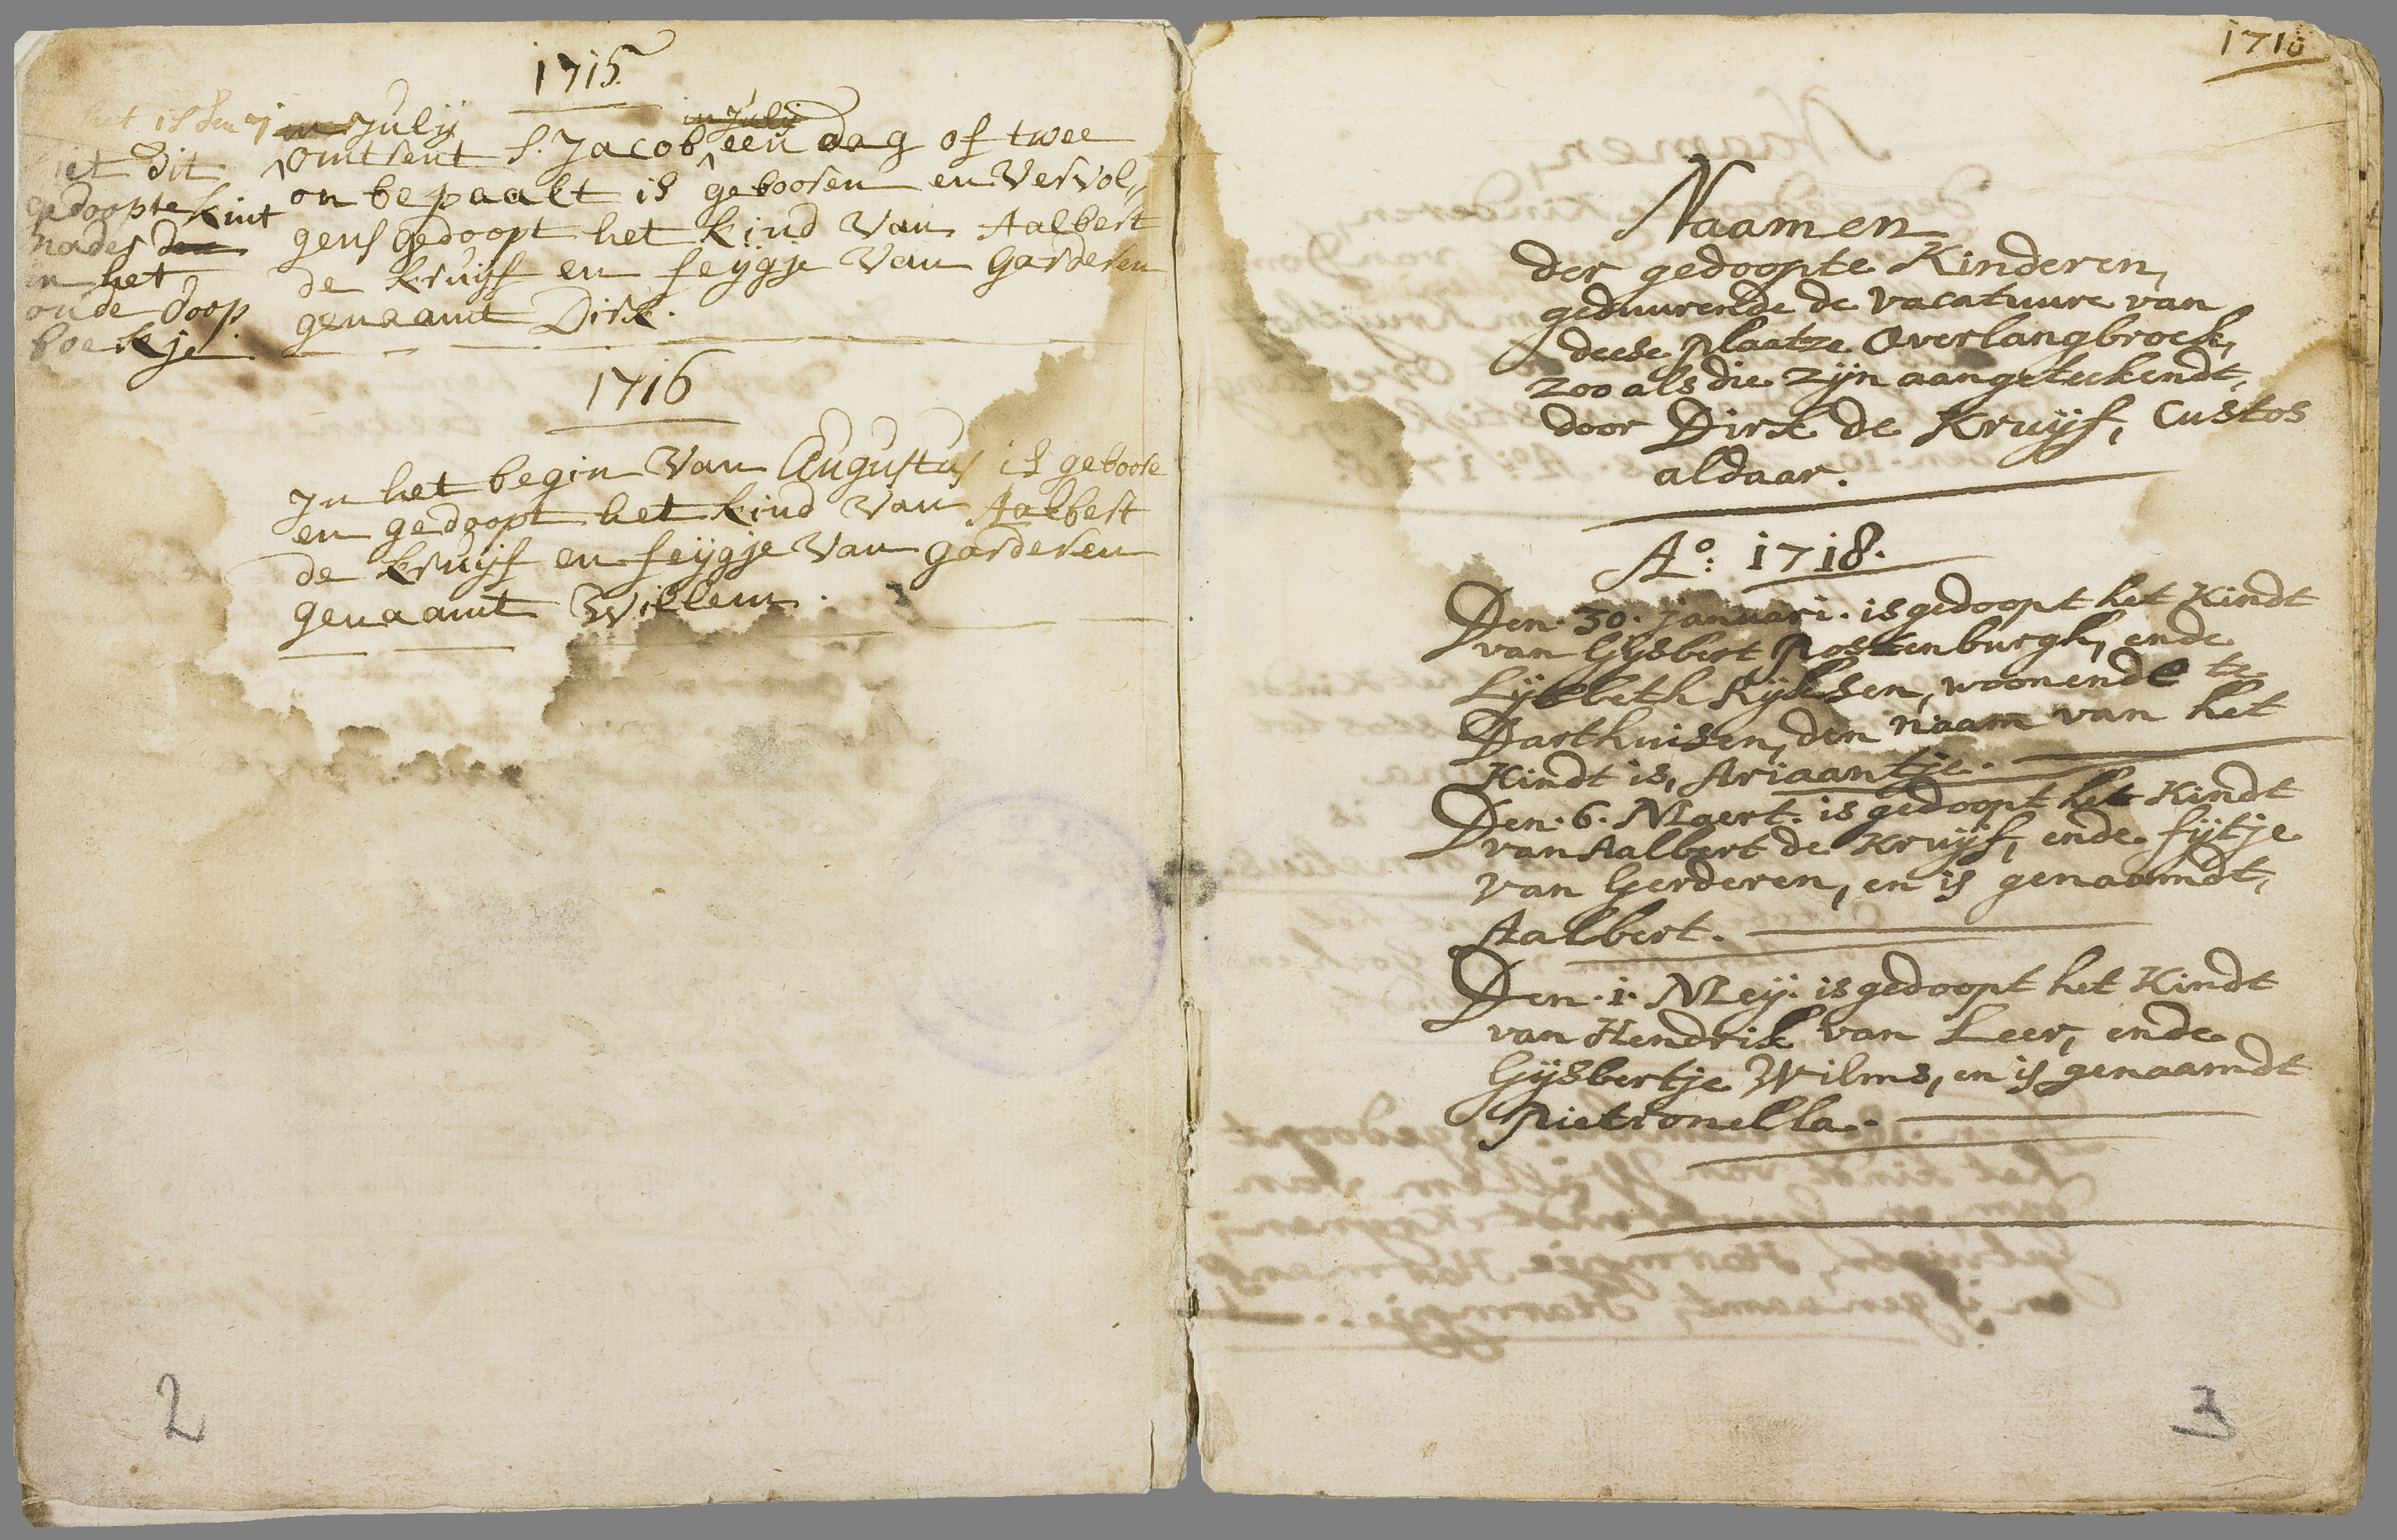 1715
het is den 7
iet dit
gedoopte kint
nader den
in het
oude doop
boekje.
in July
in July
omtrent S. Jacob een dag of twee
onbepaalt is gebooren en vervol„
gens gedoopt het kind van Aalbert
de kruijf en feijgje van Garderen
genaamt Dirk.
1716
In het begin van Augustus is geboore
en gedoopt het kind van Aalbert
de kruijf en feijgje van garderen
genaamt Willem.
2
1718
Naamen
der gedoopte Kinderen,
geduurende de vacatuure van
deese Plaatze Overlangbroek,
zoo als die zijn aangeteekendt,
door Dirk de Kruijf, Custos
aldaar.
Ao: 1718.
Den. 30. Januari. is gedoopt het Kindt
van Gijsbert Rostenburgh, ende
Lijsbeth Rijksen, woonende te
Darthuisen, den naam van het
Kindt is, Ariaantje.
Den. 6. Maert. is gedoopt het Kindt
van Aalbert de Kruijf, ende fijtje
van Gerderen, en is genaamdt,
Aalbert.
Den. 1. Meij. is gedoopt het Kindt
van Hendrik van Leer, ende
Gijsbertje Wilms, en is genaamdt
Pietronella.
3